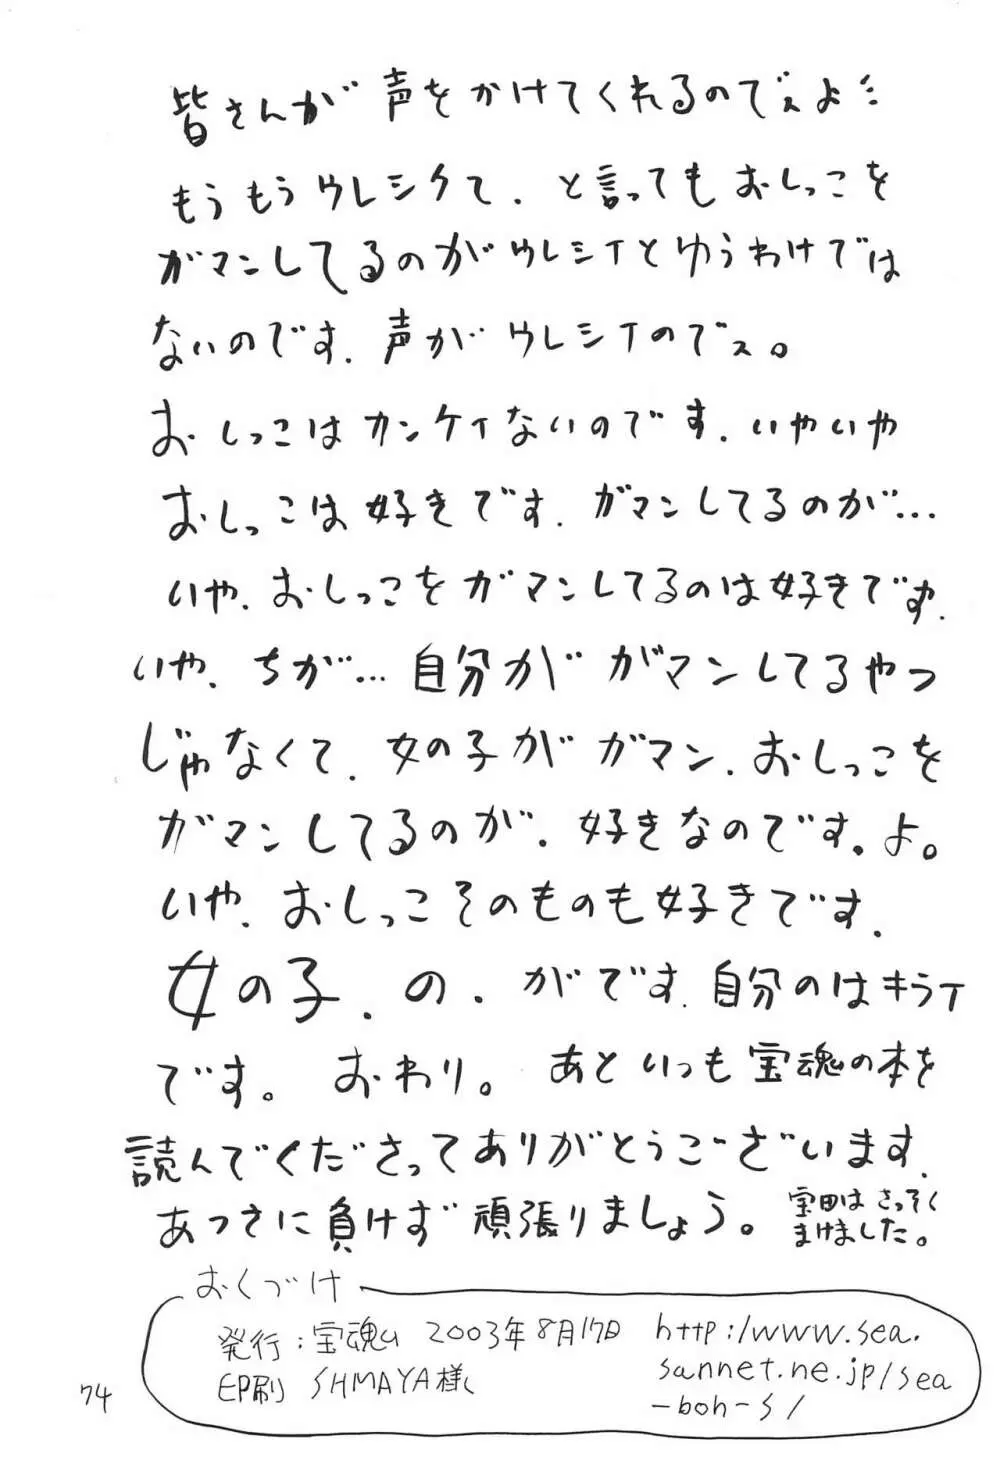 皆さんが声をかけてくれるのでスよ
もうもうウレシクて、と言ってもおしっこを
ガマンしてるのがウレシイとゆうわけでは
ないのです、声がウレシイのでス。
おしっこはカンケイないのです、いやいや
おしっこは好きです、ガマンしてるのが…
いや、おしっこをガマンしてるのは好きです、
いや、ちが…自分がガマンしてるやつ
じゃなくて、女の子がガマン、おしっこを
ガマンしてるのが、好きなのです。よ。
いや、おしっこそのものも好きです、
女の子、の、がです、自分のはキライ
です。おわり。あといつも宝魂の本を
読んでくださってありがとうございます、
あつさに負けず頑張りましょう。
宝田はさっそく
まけました。
おくづけ
発行:宝魂 2003年8月17日
印刷 SHMAYA様
http:/www.sea.
sannet.ne.jp/sea
-boh-s/
74